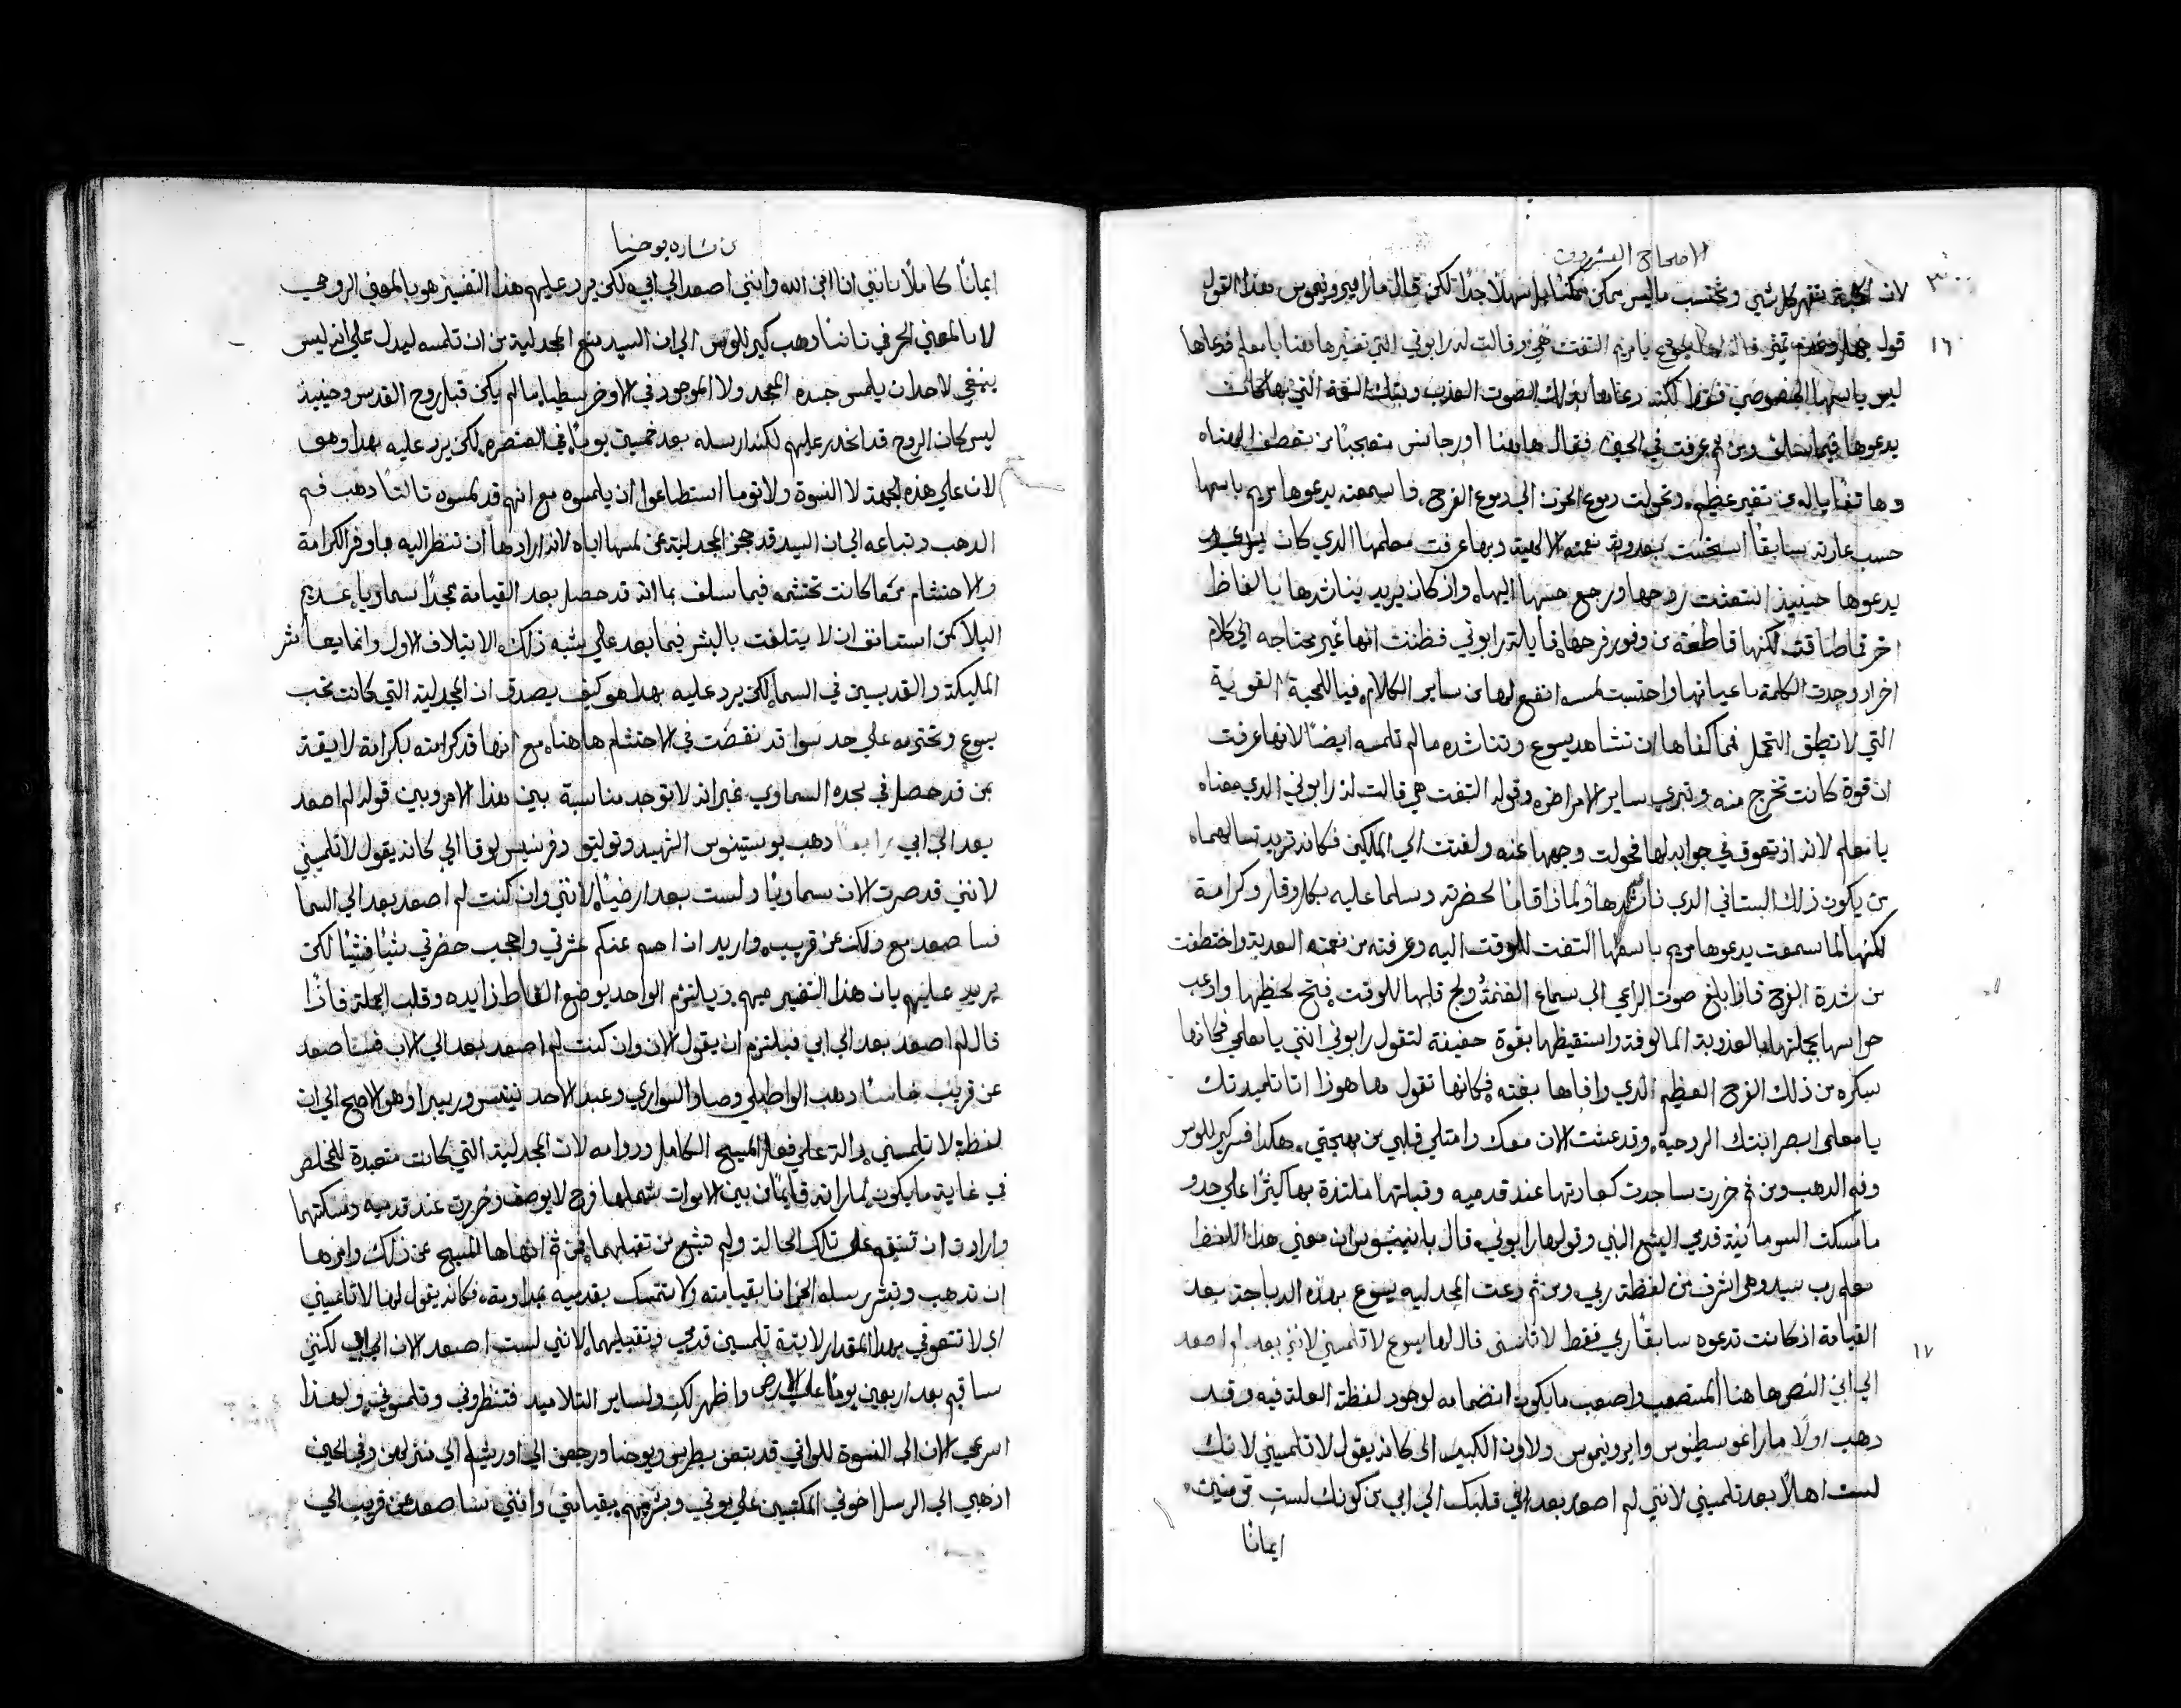 الاصحاح العشرون
لان المحبة تقهر كل شي وتحتسب ما ليس يمكن ممكنًا بل سهلًا جدًا لكن قال مار ايرونيموس هذا القول
١٦
قال لها يسوع يا مريم التفتت هي وقالت له رابوني التي تفسيرها هنا يا معلم فدعاها
ليس باسمها الخصوصي فقط لكنه دعاها بذلك الصوت العذب وبتلك النغمة التي بها كان
يدعوها فيما سلف ومن ثم عرفت في الحين فقال هاهنا اورجانس متعجبًا من تعطف الهناه
وهاتفًا ياله من تغير عظيم وتحولت دموع الحزن الي دموع الفرح فاسمعته يدعوها مريم باسمها
حسب عادته سابقًا نغمته الالهية وبها عرفت معلمها الدي كان
يدعوها حينيذٍ انتعشت روحها ورجع حسها اليها واذ كان يريد يناشدها بالفاظ
اخر فما طاقت لكنها قاطعته من وفور فرحها قايلة رابوني فظنت انها غير محتاجه الي كلام
اخر اذ وجدت الكلمة باعيانها واحتسبت لمسه انفع لها من ساير الكلام فيا للمحبة القوية
التي لا تطيق التمهل فما كفاها ان تشاهد يسوع وتناشده ما لم تلمسه ايضًا لانها عرفت
ان قوة كانت تخرج منه وتبري ساير الامراض وقوله التفتت هي قالت له رابوني الدي معناه
يا معلم لانه اذ تعوق في جوابه لها فحولت وجهها عنه ولفتت الي الملكين فكانه تريد تسالهما
من يكون ذلك البستاني الدي ناشدها ولماذا قاما لحضرته وسلما عليه بكل وقار وكرامة
لكنها لما سمعت يدعوها مريم باسمها التفتت للوقت اليه وعرفته من نغمته العدبة واختطفت
من شدة الفرح فاذا بلغ صوت الراعي الي سماع الغنمة ولج قلبها للوقت فتح لحظيها واذهب
حواسها بجملتها بالعذوبة المالوفة واستقيظها بقوة حفيفة لتقول رابوني انتي يا معلمي فكانها
سكره من ذلك الفرح العظيم الدي وافاها بغته فكانها تقول ها هوذا انا تلميدتك
يا معلمي ابصر ابنتك الروحية وقد عشت الان معك وامتلي قلبي من بهجتي هكدا فسر كيرللوس
وفم الدهب ومن ثم خرت ساجدت كعادتها عند قدميه وقبلتها متلدة بها كثيرًا علي حدو
ما مسكت السومانية قدمي اليشع النبي وقولها رابوني قال ان معني هدا اللفظ
معلم رب سيد وهي اشرف من لفظة ربي ومن ثم دعت المجدليه يسوع بهده الديباجة بعد
القيامة اذ كانت تدعوه سابقًا ربي فقط
١٧
قال لها يسوع لا تلمسيني لانني بعد لم اصعد
الي ابي النص هاهنا المستصعب واصعب ما يكون انضمامه لوجود لفظة العلة فيه وقد
دهب اولًا مار اغوسطينوس وايرونيموس ولاون الكبير الي كانه يقول لا تلمسيني لانك
لست اهلًا بعد تلمسيني لانني لم اصعد بعد في قلبك الي ابي من كونك لست تومنين
ايمانًا
من بشاره يوحنا
ايمانًا كاملًا بانني انا ابن الله وانني اصعد الي ابي لكن يرد عليهم هذا التفسير هو بالمعني الروحي
لا بالمعني الحرفي ثانيًا دهب كيرللوس الي ان السيد منع المجدلية من ان تلمسه ليدل علي انه ليس
ينبغي لاحد ان يلمس جسده الممجد ولا الموجود في الاوخرسطيا ما لم يكن قبل روح القدس وحينيذٍ
ليس كان الروح قد انحدر عليهم لكنه ارسله بعد خمسين يومًا في العنصره لكن يرد عليه بهدا وهو
لان علي هذه الجهة لا النسوة ولا توما استطاعوا ان يلمسوه مع انهم قد لمسوه ثالثًا دهب فم
الدهب وتباعه الي ان السيد قد حجز المجدلية عن لمسها اياه لانه ارادها ان تنظر اليه باوفر الكرامة
والاحتشام مما كانت تحتشمه فيما سلف بما انه قد حصل بعد القيامة ممجدًا سماويًا عديم
البلا كمن استانف ان لا يتلفت بالبشر فيما بعد علي شبه ذلك الايتلاف الاول وانما يعاشر
المليكة والقديسين في السما لكن يرد عليه بهدا هو كيف يصدق ان المجدلية التي كانت تحب
يسوع وتحترمه علي حد سوا قد نقصت في الاحتشام هاهناه مع انها قد كرامته بكرامة لايقة
بمن قد حصل في مجده السماوي غير انه لا توجد مناسبة بين هذا الامر وبين قوله لم اصعد
بعد الي ابي رابعًا دهب يوستينوس الشهيد وتوليتو وفرنسيس لوقا الي كانه يقول لا تلمسيني
لانني قد صرت الان سماويًا ولست بعد ارضيًا لانني وان كنت لم اصعد بعد الي السما
فساصعد مع ذلك عن قريب واريد ان احسم عنكم عشرتي واحجب حضرتي شيًا فشيًا لكن
يرد عليهم بان هذا التفسير مبهم ويلتزم الواحد بوضع الفاظ زايده وقلب الجملة فاذًا
قال لم اصعد بعد الي ابي فيلتزم ان يقول الان وان كنت لم اصعد بعد الي الاب فساصعد
عن قريب خامسًا دهب وهو الاصح الي ان
لفظة لا تلمسيني دالة علي فعل المسيح الكامل ودوامه لان المجدلية التي كانت متعبدة للمخلص
في غاية ما يكون لما راته قايمًا من بين الاموات شملها فرح لا يوصف وخررت عند قدميه ومسكتهما
وارادت ان تستقيم علي تلك الحالة ولم تشبع من تقبيلهما فمن ثم انهاها المسيح عن ذلك وامرها
ان تدهب وتبشر رسله الحزانا بقيامته ولا تتمسك بقدميه بمداومة فكانه يقول لها لا تلمسيني
اي لا تتعوقي بهدا المقدار لابتة تلمسين قدمي وتقبليهما لانني لست اصعد الان الي ابي لكنني
ساقيم بعد اربعين يومًا علي الارض واظهر لكِ ولساير التلاميد فتنظروني وتلمسوني ولهذا
اسرعي الان الي النسوة اللواتي قد تبعن بطرس ويوحنا ورجعن الي اورشليم الي منزلهن وفي الحين
ادهبي الي الرسل اخوتي المكتيبين علي موتي وبشريهم بقيامتي وانني ساصعد عن قريب الي